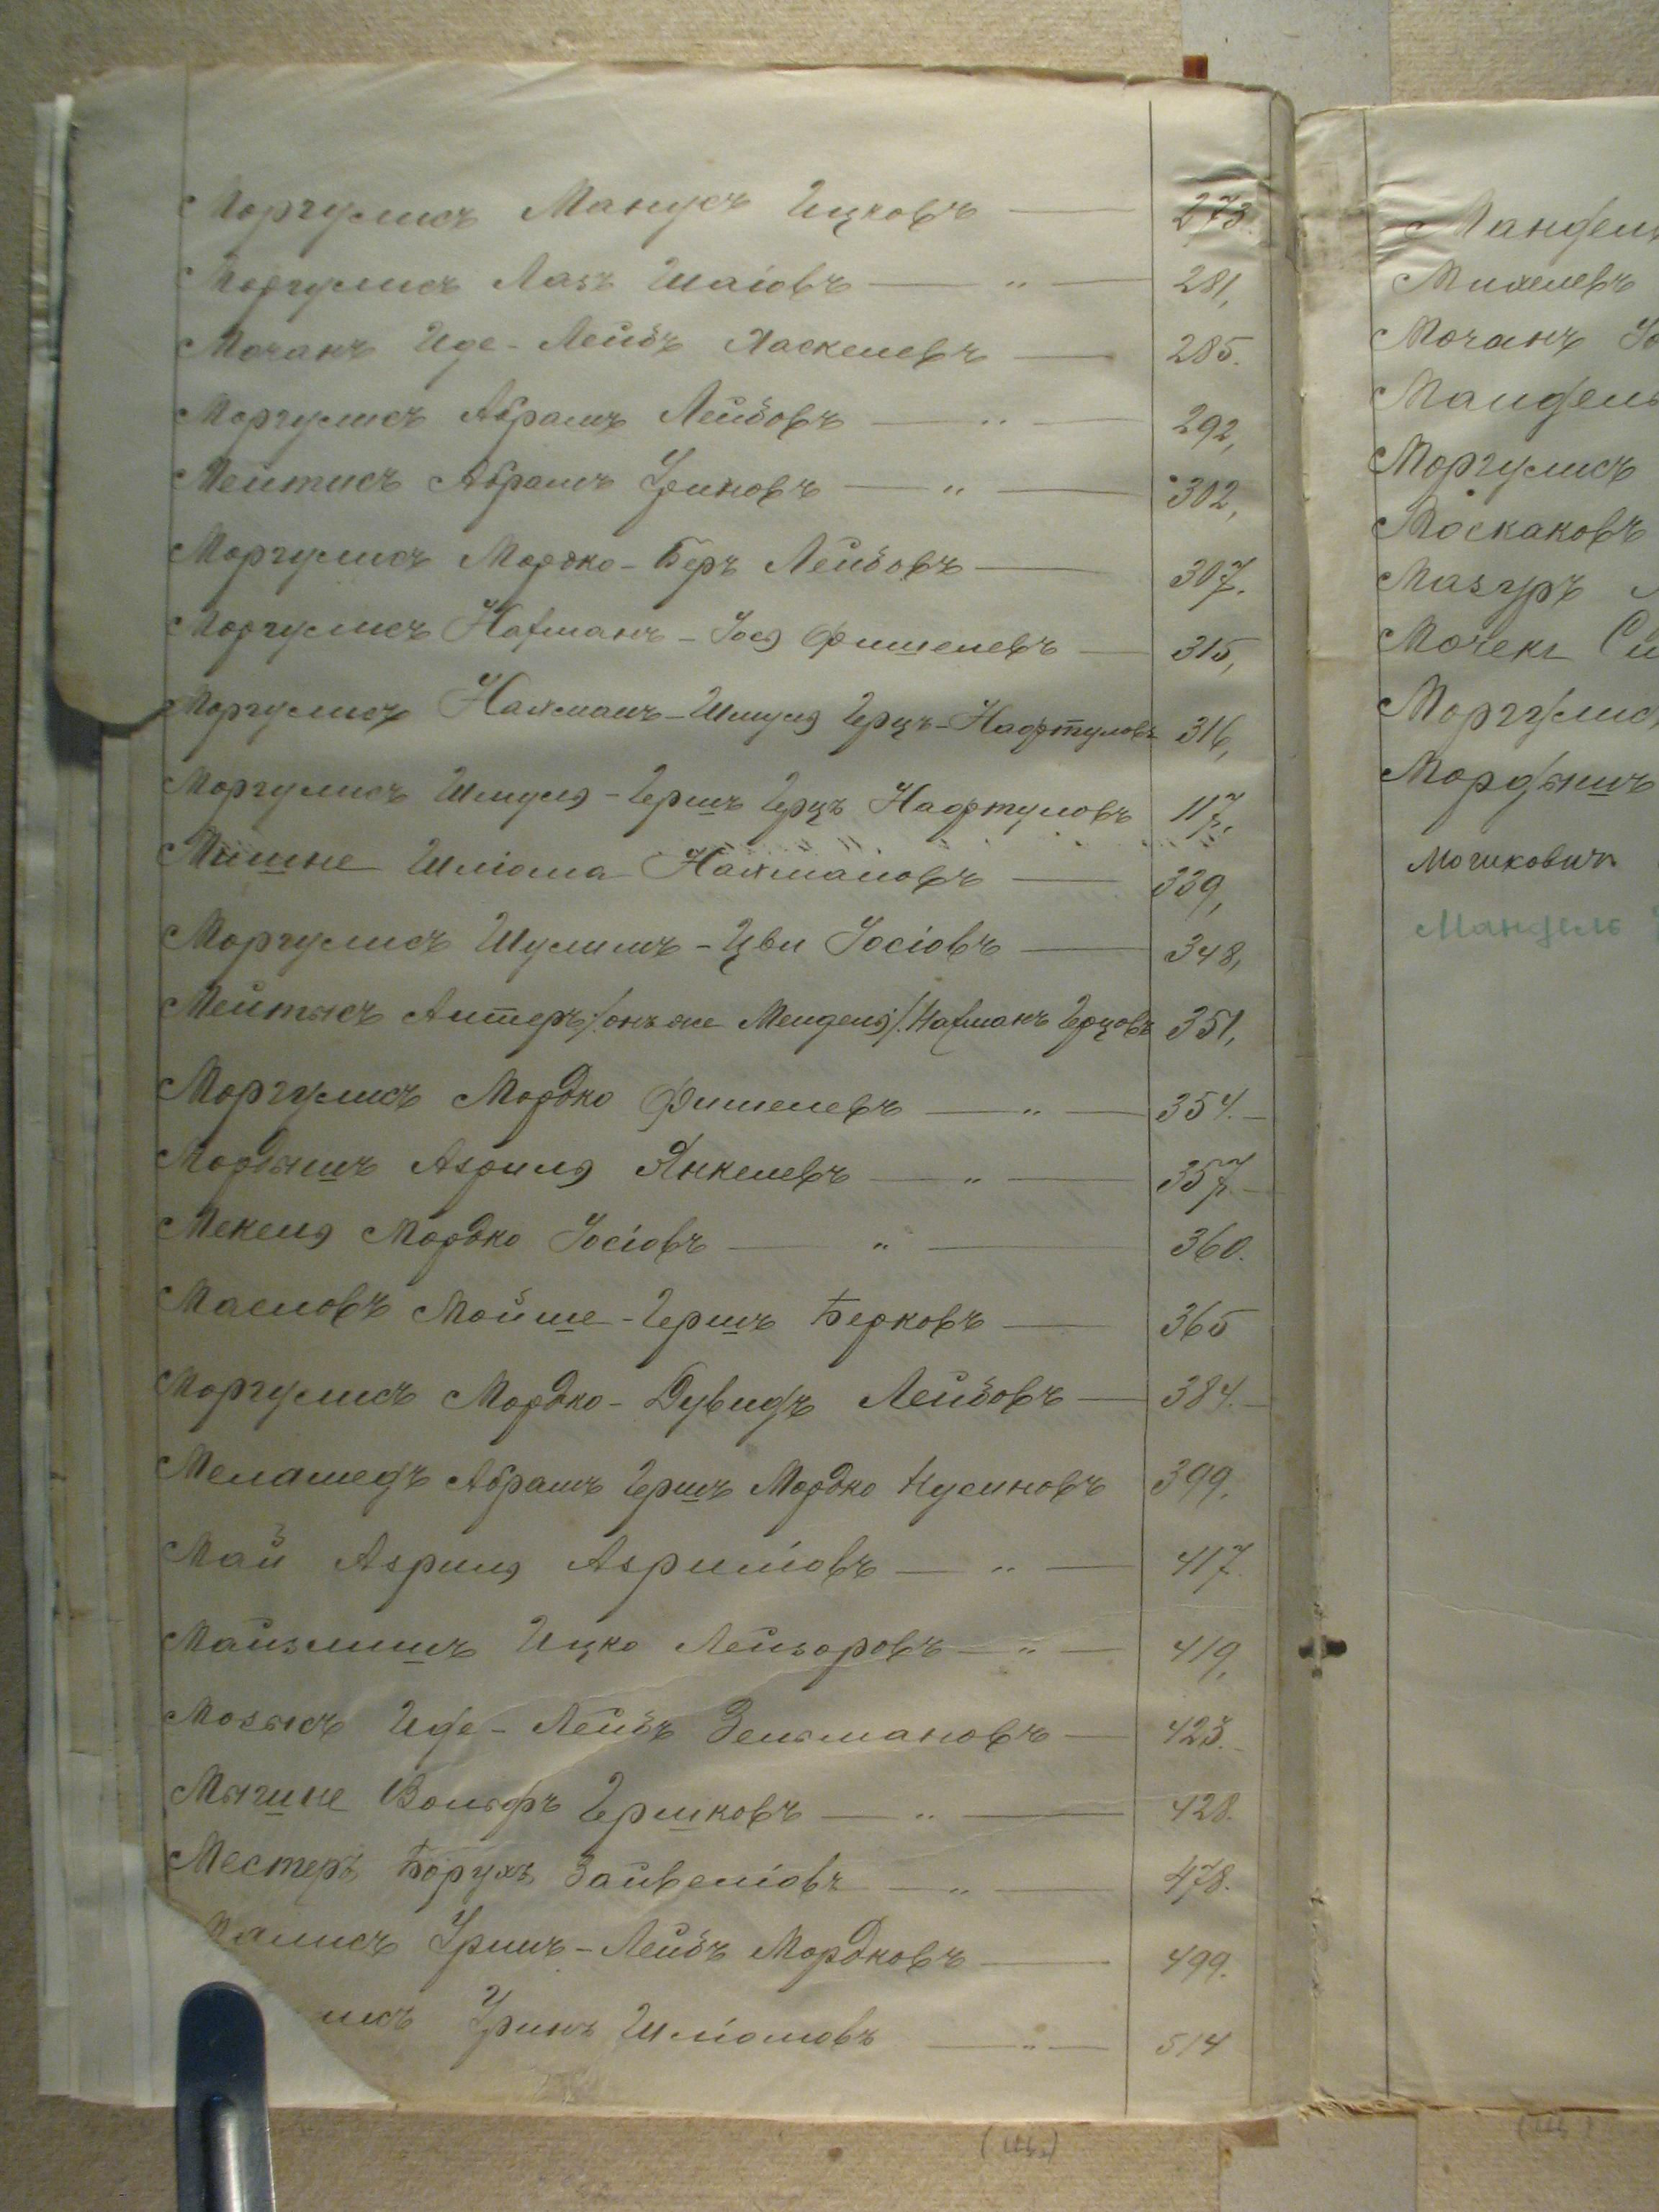 Моргулисъ Манусъ Ицковъ — 273.
Моргулисъ Лазъ Шаіовъ — " — 281,
Мочанъ Иде-Лейбъ Хаскелевъ — 285.
Моргулисъ Абрамъ Лейбовъ — " — 292,
Мейтисъ Абрамъ Уриновъ — " — 302,
Моргулисъ Мордко-Беръ Лейбовъ — 307.
Моргулисъ Нахманъ-Іося Фишелевъ — 315,
Моргулисъ Нахманъ-Шмуля Герцъ-Нафтуловъ 316,
Моргулисъ Шмуля-Гершъ Герцъ Нафтуловъ 117.
Мишне Шліома Нахмановъ — 339,
Моргулисъ Шулимъ-Цви Іосіовъ — 348,
Мейтысъ Антеръ /:онъ же Менделя:/ Нахманъ Герцовъ 351,
Моргулисъ Мордко Фишелевъ — " — 354. —
Мордышъ Азриля Янкелевъ — " — 357 —
Мекеля Мордко Іосіовъ — " — 360.
Масловъ Мойше-Гершъ Берковъ — 365
Моргулисъ Мордко-Дувидъ Лейбовъ — 384. —
Меламедъ Абрамъ Гершъ Мордко Кусиновъ 399.
Май Азриля Азриліовъ — " — 417.
Майзлишъ Ицко Лейзоровъ — " — 419,
Мозысъ Иде-Лейбъ Зельмановъ — 423. —
Мягшне Вольфъ Гершковъ — " — 428.
Местеръ Борухъ Зайвеліовъ — " — 478.
Малисъ Уринъ-Лейбъ Мордковъ — 499.
лисъ Уринъ Шліомовъ — " — 514
Мандель
Михелевъ
Мочанъ Іо
Мандель
Моргулисъ
Москаковъ
Мазуръ
Мочекъ Си
Моргулисъ
Мордышъ
Мошковичъ
Мандель